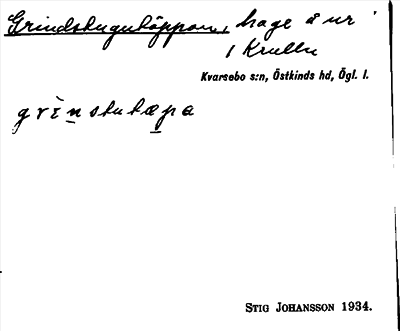 Grindstugutäppan, hage å nr
1 Krullu
Kvarsebo s:n, Östkinds hd, Ögl. l.
grìnstutæpa
STIG JOHANSSON 1934.